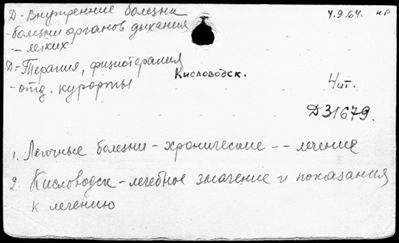 Д-Внутренние болезни
-болезни органов дыхания
-- легких
Д-Терапия, физиотерапия
-отд. курорты
4.9.64. кр
Кисловодск.
4ит.
Д31679.
1. Легочные болезни - хронические -- лечение
2. Кисловодск - лечебное значение и показания
к лечению